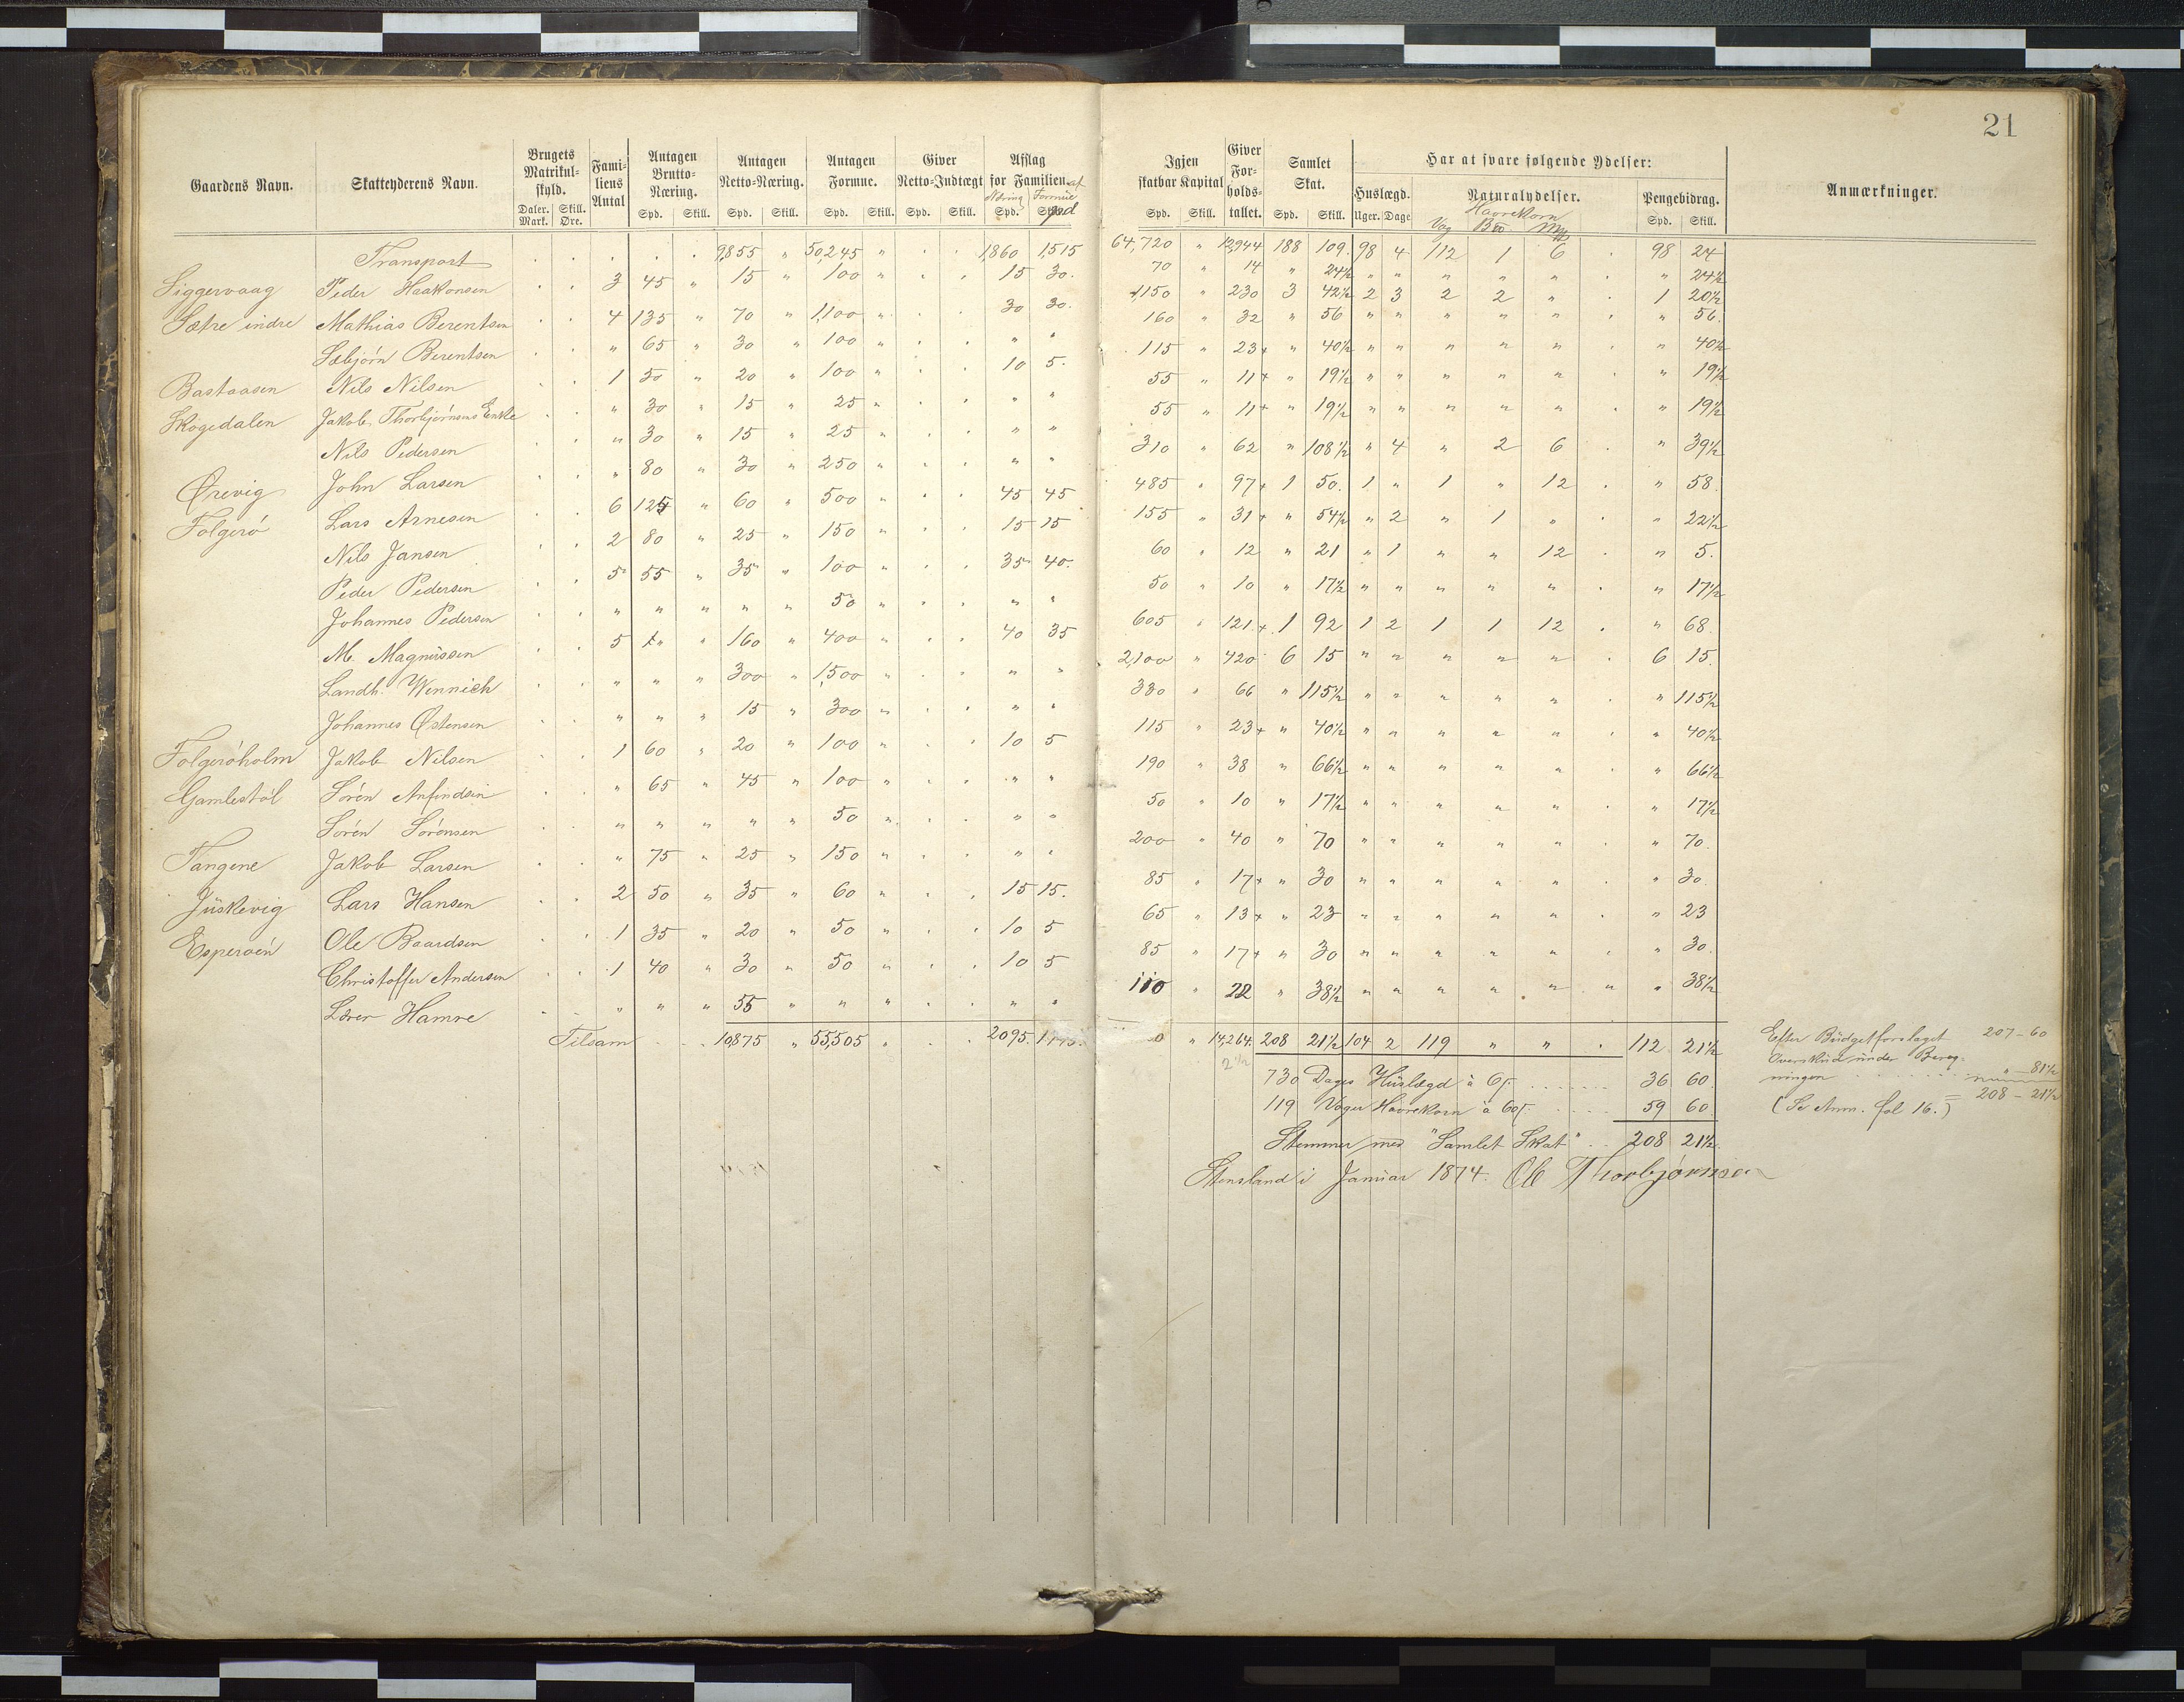 21
Gaardens Navn. Skatteyderens Navn. Brugets Matrikul-skyld. Fami-liens Antal Antagen Brutto-Næring. Antagen Netto-Næring. Antagen Formue. Giver Netto-Indtægt Afslag for Familien. af Igjen skatbar Kapital Giver For-holds-tallet. Samlet Skat. Har at svare følgende Ydelser: Anmærkninger.
Huslægd. Naturalydelser. Pengebidrag.
Daler. Mark. Skill. Øre. Spd. Skill. Spd. Skill. Spd. Skill. Spd. Skill. Næring Spd. Formue Spd. Skill. Spd. Skill. Uger. Dage Havrekorn Vog Spd. Skill.
Transport . . . . . 9,855 " 50,245 " . . 1,860 1,515 64,720 " 12,944 188 109. 98 4 112 1 6 . 98 24
Siggervaag Peder Haakonsen . . 3 45 " 15 " 100 " . . 15 30. 70 " 14 " 24½ " " " " " . " 24½
Sætre indre Mathias Berentsen . . 4 135 " 70 " 1,100 " . . 30 30. 1,150 " 230 3 42½ 2 3 2 2 " . 1 20½
Sæbjørn Berentsen . . " 65 " 30 " 100 " . . " " 160 " 32 " 56 " " " " " . " 56.
Bastaasen Nils Nilsen . . 1 50 " 20 " 100 " . . 10 5. 115 " 23+ " 40½ " " " " " . " 40½
Skogedalen Jakob Thorbjørnsens Enke . . " 30 " 15 " 25 " . . " " 55 " 11+ " 19½ " " " " " . " 19½
Nils Pedersen . . " 30 " 15 " 25 " . . " " 55 " 11+ " 19½ " " " " " . " 19½
Ørevig John Larsen . . " 80 " 30 " 250 " . . " " 310 " 62 " 108½ " 4 " 2 6 . " 39½
Folgerø Lars Arnesen . . 6 125 " 60 " 500 " . . 45 45 485 " 97+ 1 50. 1 " 1 " 12 . " 58.
Nils Jansen . . 2 80 " 25 " 150 " . . 15 15 155 " 31+ " 54½ " 2 " 1 " . " 22½
Peder Pedersen . . 5 55 " 35 " 100 " . . 35 40. 60 " 12 " 21 " 1 " " 12 . " 5.
Johannes Pedersen . . " " " " " 50 " . . " " 50 " 10 " 17½ " " " " " . " 17½
M. Magnüssen . . 5 " " 160 " 400 " . . 40 35 605 " 121+ 1 92 1 2 1 1 12 . " 68.
Landh. Wennich . . " " " 300 " 1,500 " . . " " 2,100 " 420 6 15 " " " " " . 6 15.
Johannes Østensen . . " " " 15 " 300 " . . " " 330 " 66 " 115½ " " " " " . " 115½
Folgerøholm Jakob Nilsen . . 1 60 " 20 " 100 " . . 10 5 115 " 23+ " 40½ " " " " " . " 40½
Gamlestøl Sørén Anfindsen . . " 65 " 45 " 100 " . . " " 190 " 38 " 66½ " " " " " . " 66½
Sørén Sørensen . . " " " " " 50 " . . " " 50 " 10 " 17½ " " " " " . " 17½
Tangene Jakob Larsen . . " 75 " 25 " 150 " . . " " 200 " 40 " 70 " " " " " . " 70.
Jüskevig Lars Hansen . . 2 50 " 35 " 60 " . . 15 15. 85 " 17+ " 30 " " " " " . " 30.
Esperøén Ole Baardsen . . 1 35 " 20 " 50 " . . 10 5 65 " 13+ " 23 " " " " " . " 23
Christoffer Andersen . . 1 40 " 30 " 50 " . . 10 5 85 " 17+ " 30 " " " " " . " 30.
Lærer Hamre . . " " " 55 " " " . . " " 110 " 22 " 38½ " " " " " " " 38½
Tilsam . . 10,875 " 55,505 " . . 2095. " 14,264. 208 21½ 104 2 119 " " . 112 21½
2½
730 Dages Hüslægd à 6 ſ. . . . . . 36 60.
119 Voger Havrekorn à 60 ſ. . . . . 59 60.
Stemmer med "Samlet Skat" . . 208 21½.
Stensland i Januar 1874. Ole Thorbjørnsen
Efter Büdgetforslaget 207 - 60
Overskud ünder Bereg-
ningen . . . . . . . " - 81½
= 208 - 21½
(Se Anm. fol 16.)